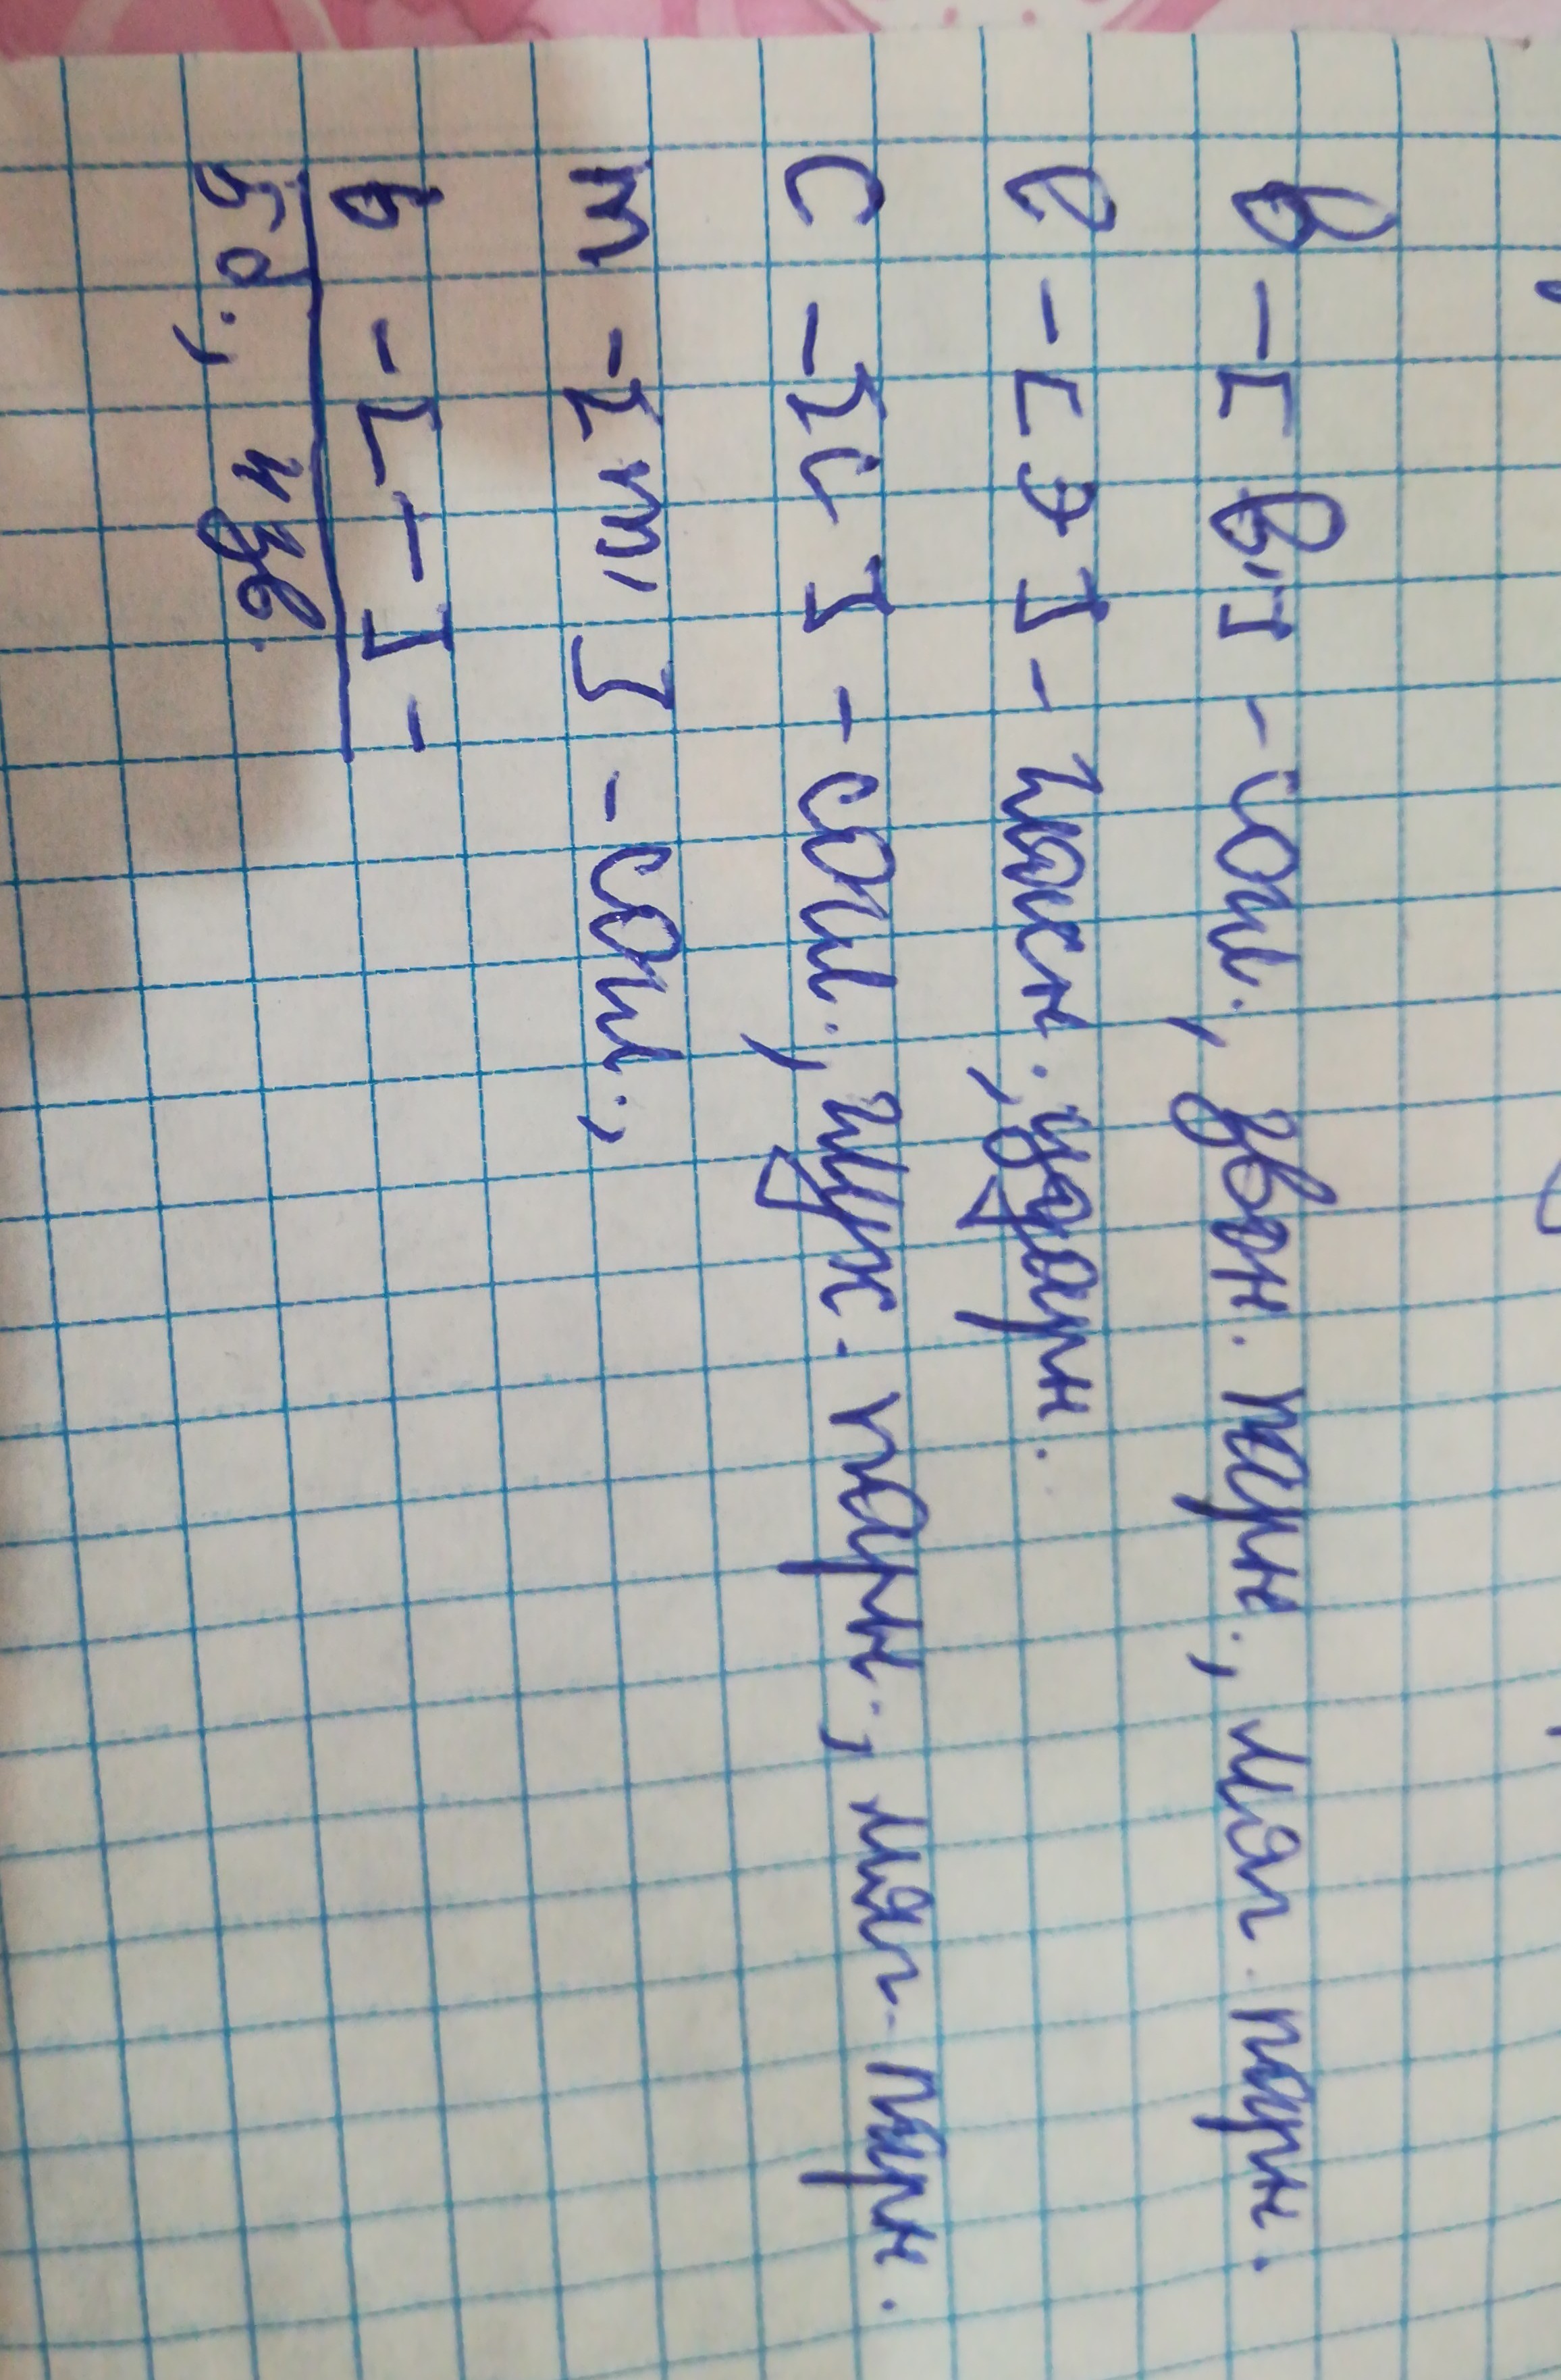 в - [ в' ] - согл., звон. парн., мяг. парн.
е - [ э ] - гласн., ударн.
с - [ с ] - согл., глух. парн., мяг. парн.
т - [ т' ] - согл.,
ь - [ - ] -
5 б., 4 зв.